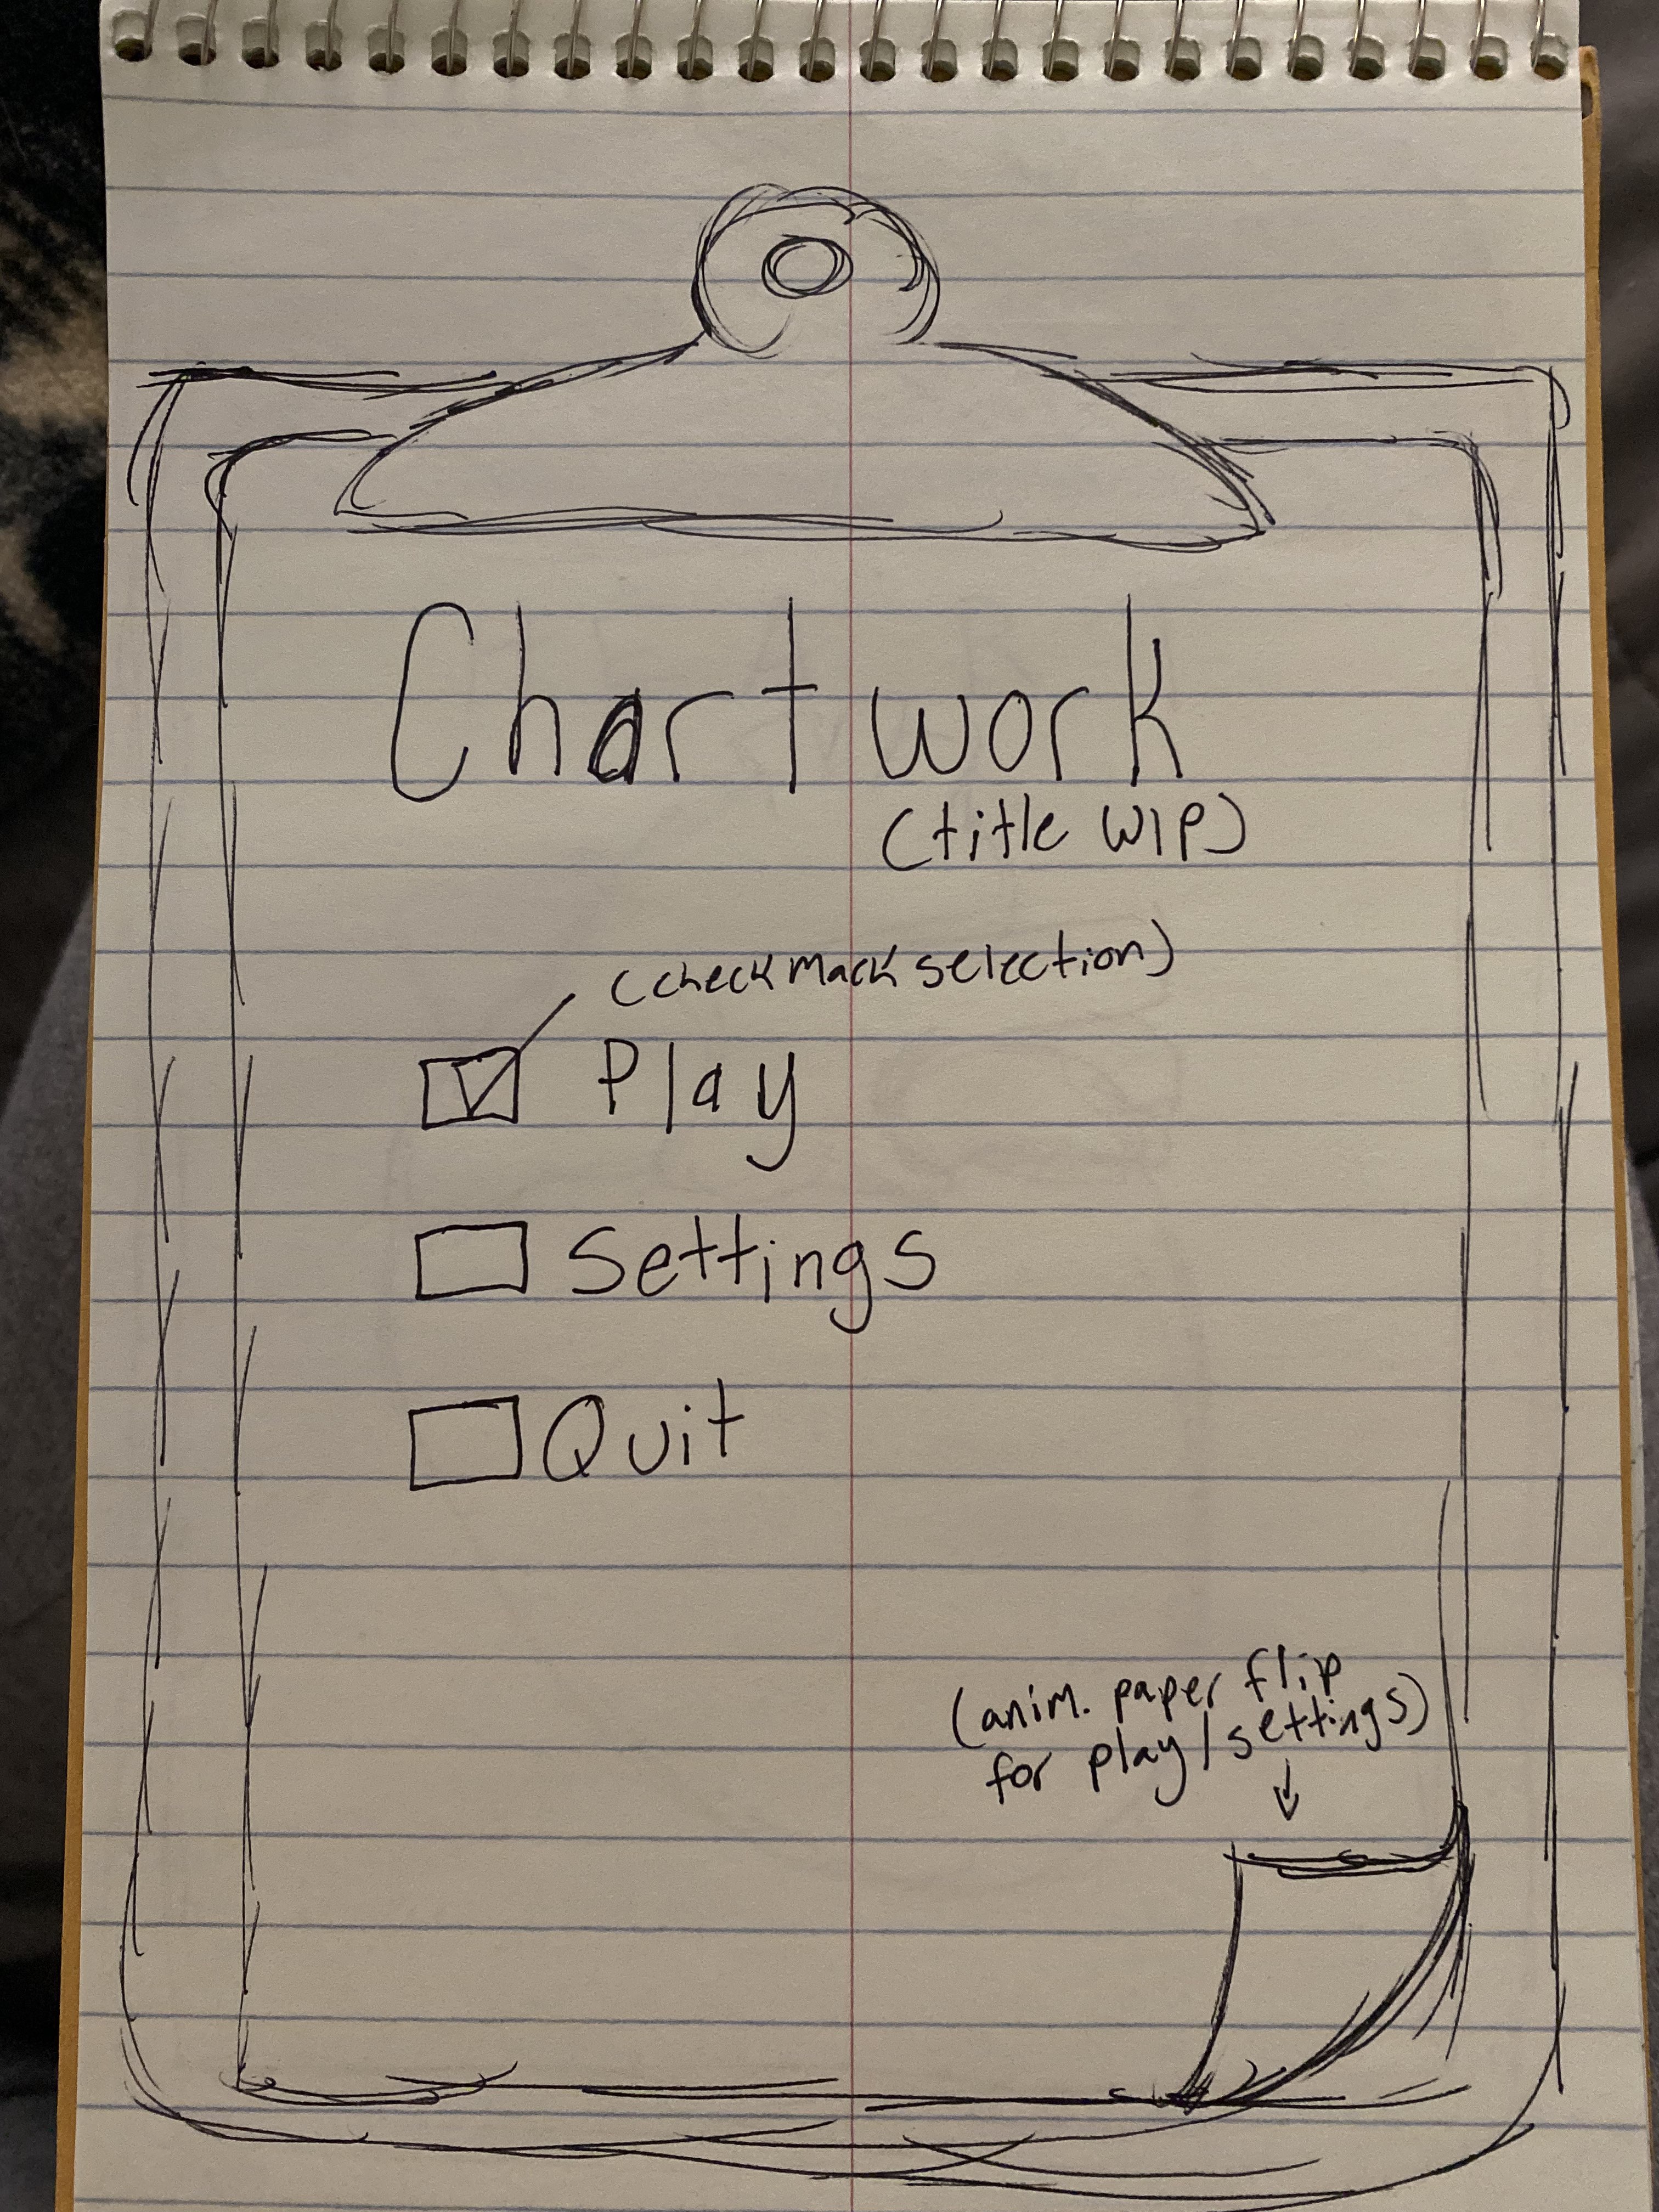 Chart work
(title WIP)
(checkmark selection)
Play
Settings
Quit
(anim. paper flip
for play/settings)